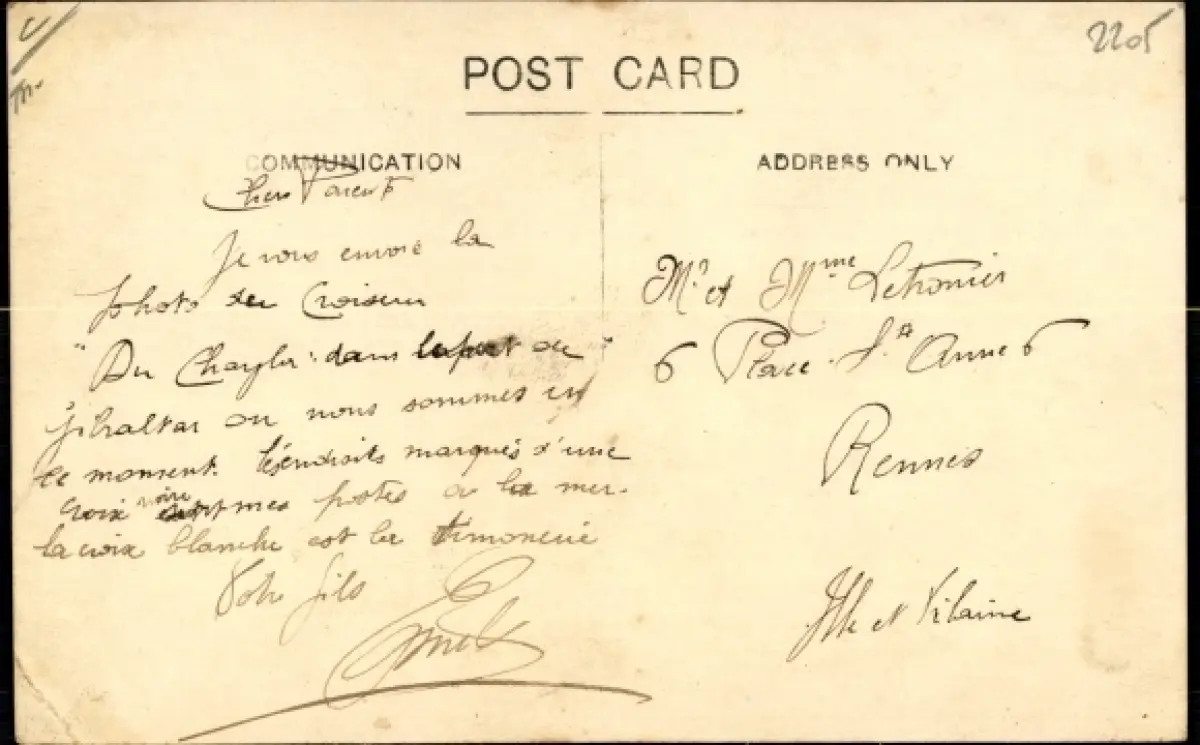 2205
POST CARD
COMMUNICATION
Chers Parents
Je vous envoie la
photo du Croiseur
"Du Chayla" dans le port de
Gibraltar ou nous sommes en
ce moment. Les endroits marqués d'une
croix noire sont mes postes a la mer.
la croix blanche est la timonerie
Votre fils
ADDRESS ONLY
Mr et Mme Letronier
6 Place Ste Anne 6
Rennes
Ille et Vilaine